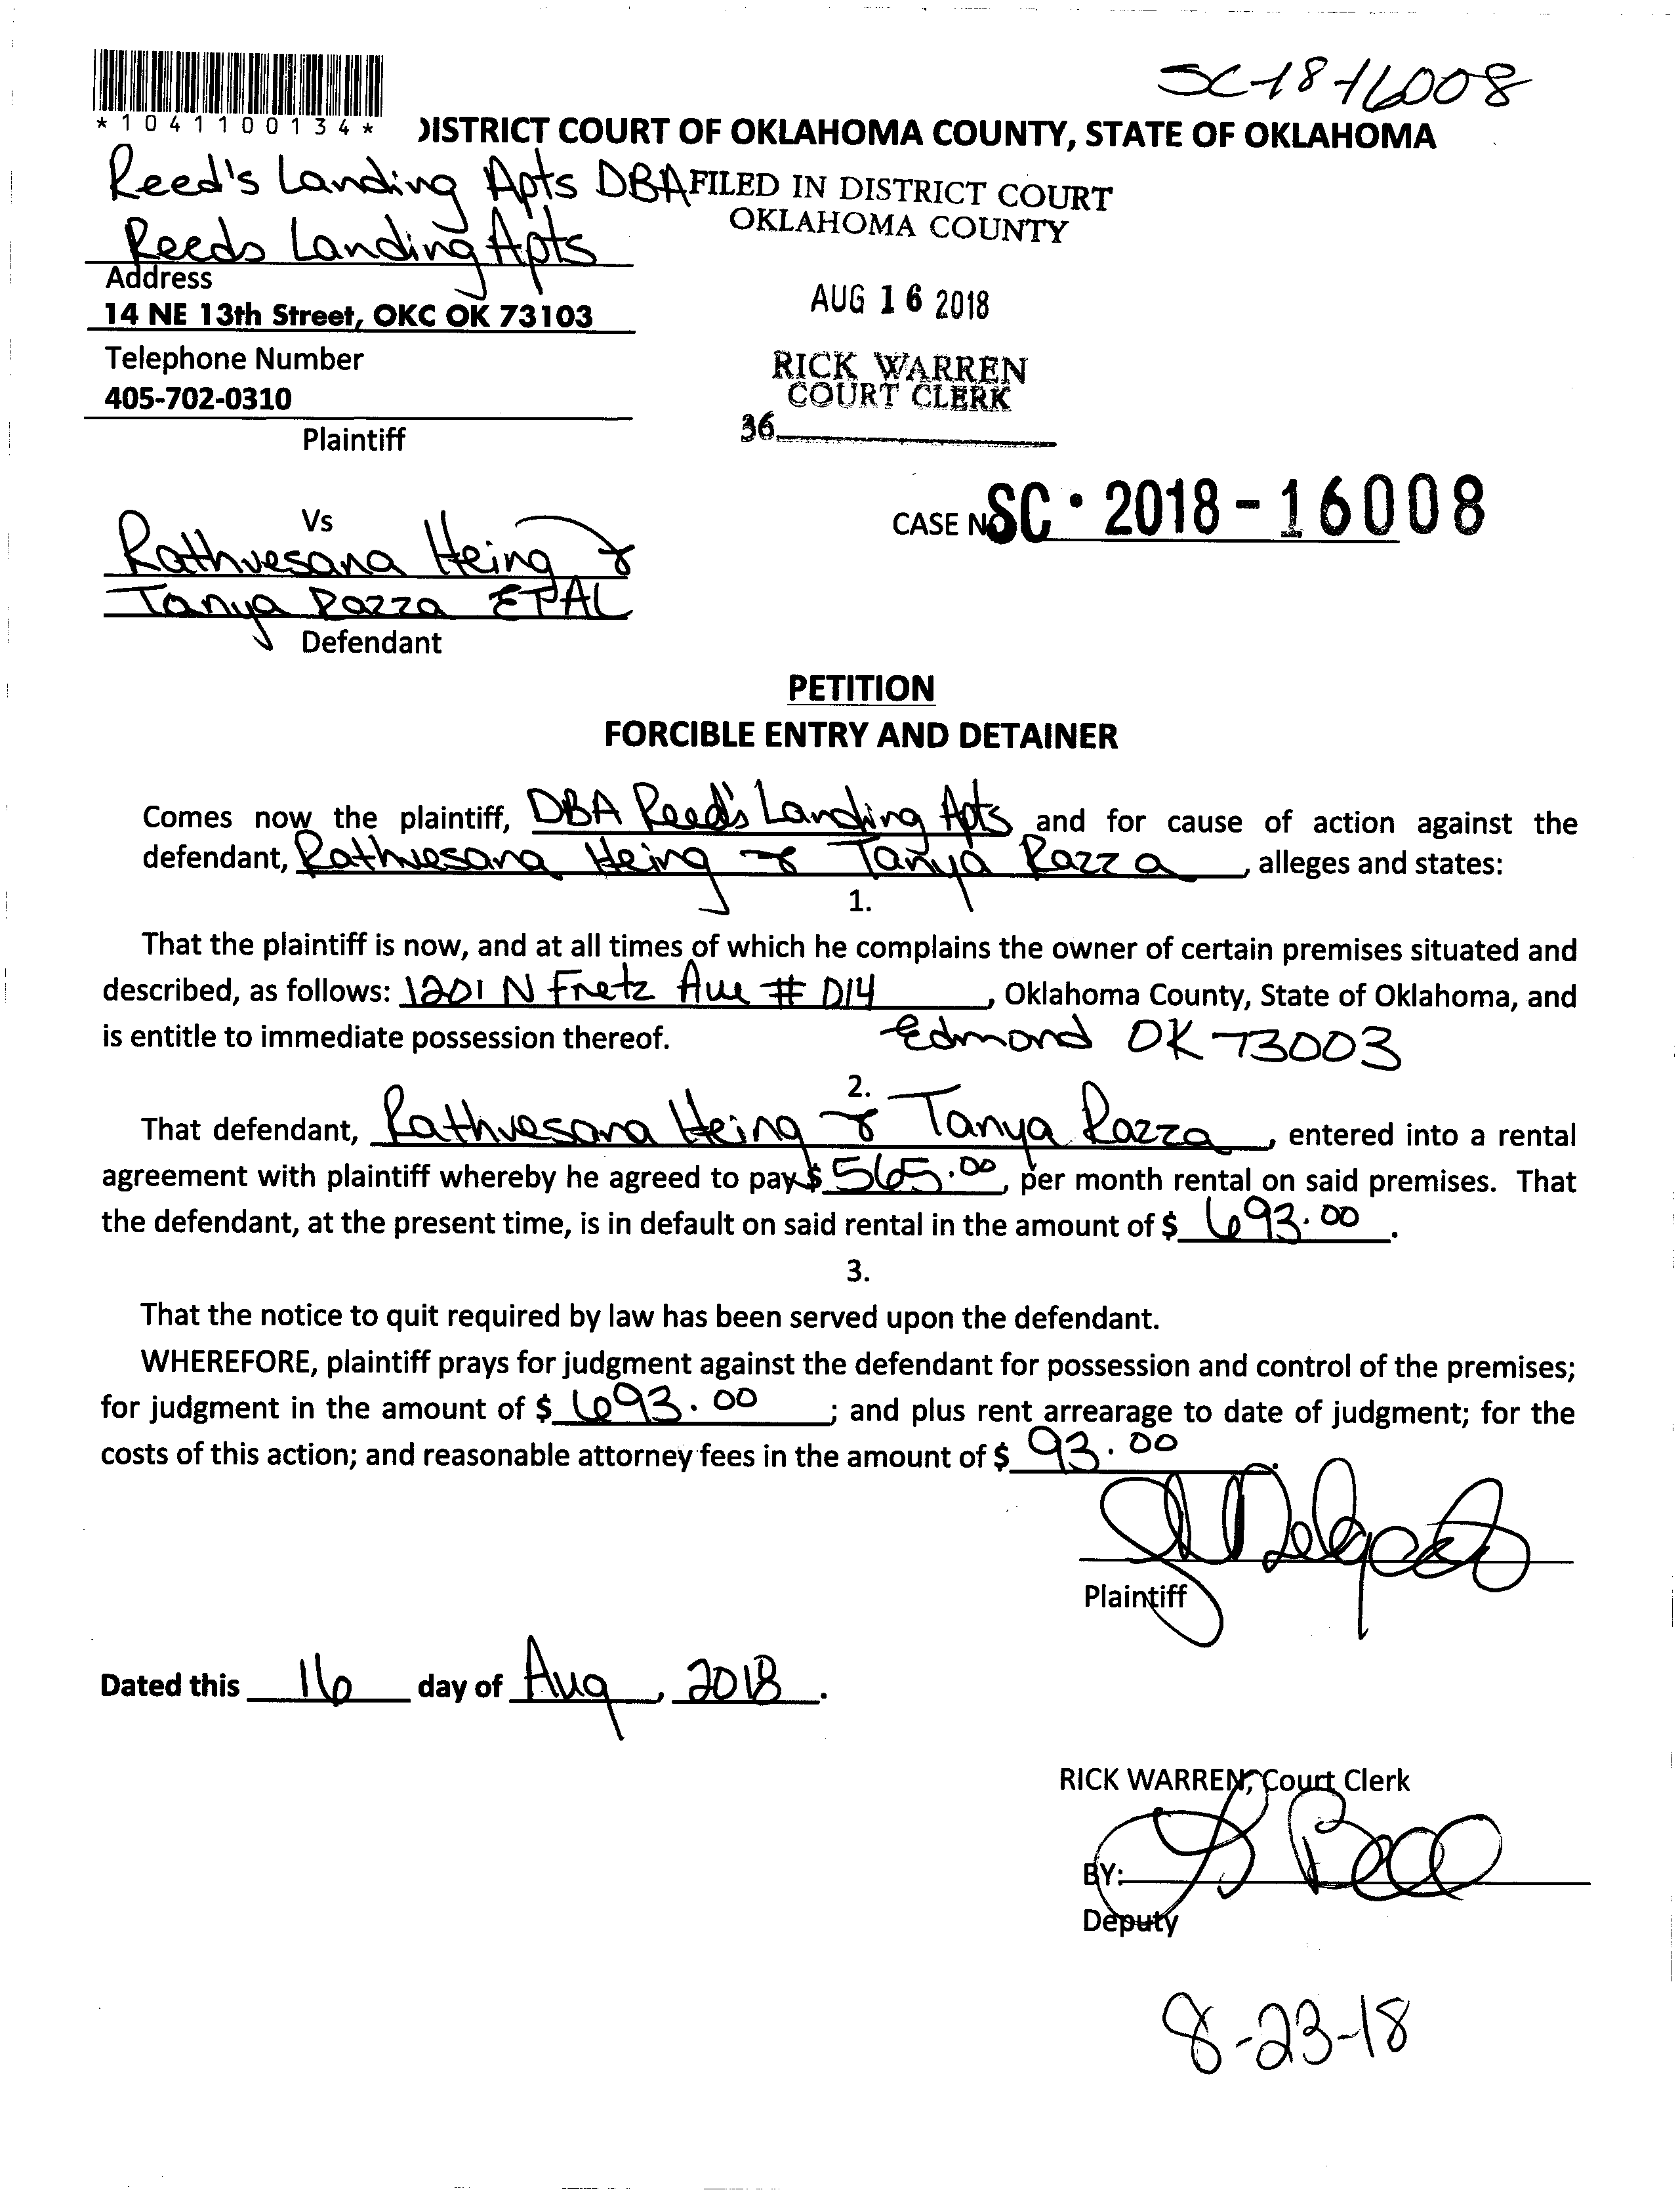 SC-18-16008
*1041100134*
DISTRICT COURT OF OKLAHOMA COUNTY, STATE OF OKLAHOMA
Reed's Landing Apts DBA
Reeds Landing Apts
FILED IN DISTRICT COURT
OKLAHOMA COUNTY
Address
14 NE 13th Street, OKC OK 73103
AUG 16 2018
Telephone Number
405-702-0310
RICK WARREN
COURT CLERK
36
Plaintiff
Vs
CASE NO SC • 2018-16008
Rathvesana Heing &
Tanya Razza ETAL
Defendant
PETITION
FORCIBLE ENTRY AND DETAINER
Comes now the plaintiff, DBA Reed's Landing Apts and for cause of action against the
defendant, Rathvesana Heing & Tanya Razza, alleges and states:
1.
That the plaintiff is now, and at all times of which he complains the owner of certain premises situated and
described, as follows: 1201 N Fretz Ave # D14, Oklahoma County, State of Oklahoma, and
is entitle to immediate possession thereof. Edmond OK 73003
2.
That defendant, Rathvesana Heing & Tanya Razza, entered into a rental
agreement with plaintiff whereby he agreed to pay $ 565.00, per month rental on said premises. That
the defendant, at the present time, is in default on said rental in the amount of $ 693.00.
3.
That the notice to quit required by law has been served upon the defendant.
WHEREFORE, plaintiff prays for judgment against the defendant for possession and control of the premises;
for judgment in the amount of $ 693.00; and plus rent arrearage to date of judgment; for the
costs of this action; and reasonable attorney fees in the amount of $ 93.00.
Plaintiff
Dated this 16 day of Aug, 2018.
RICK WARREN, Court Clerk
BY:
Deputy
8-23-18